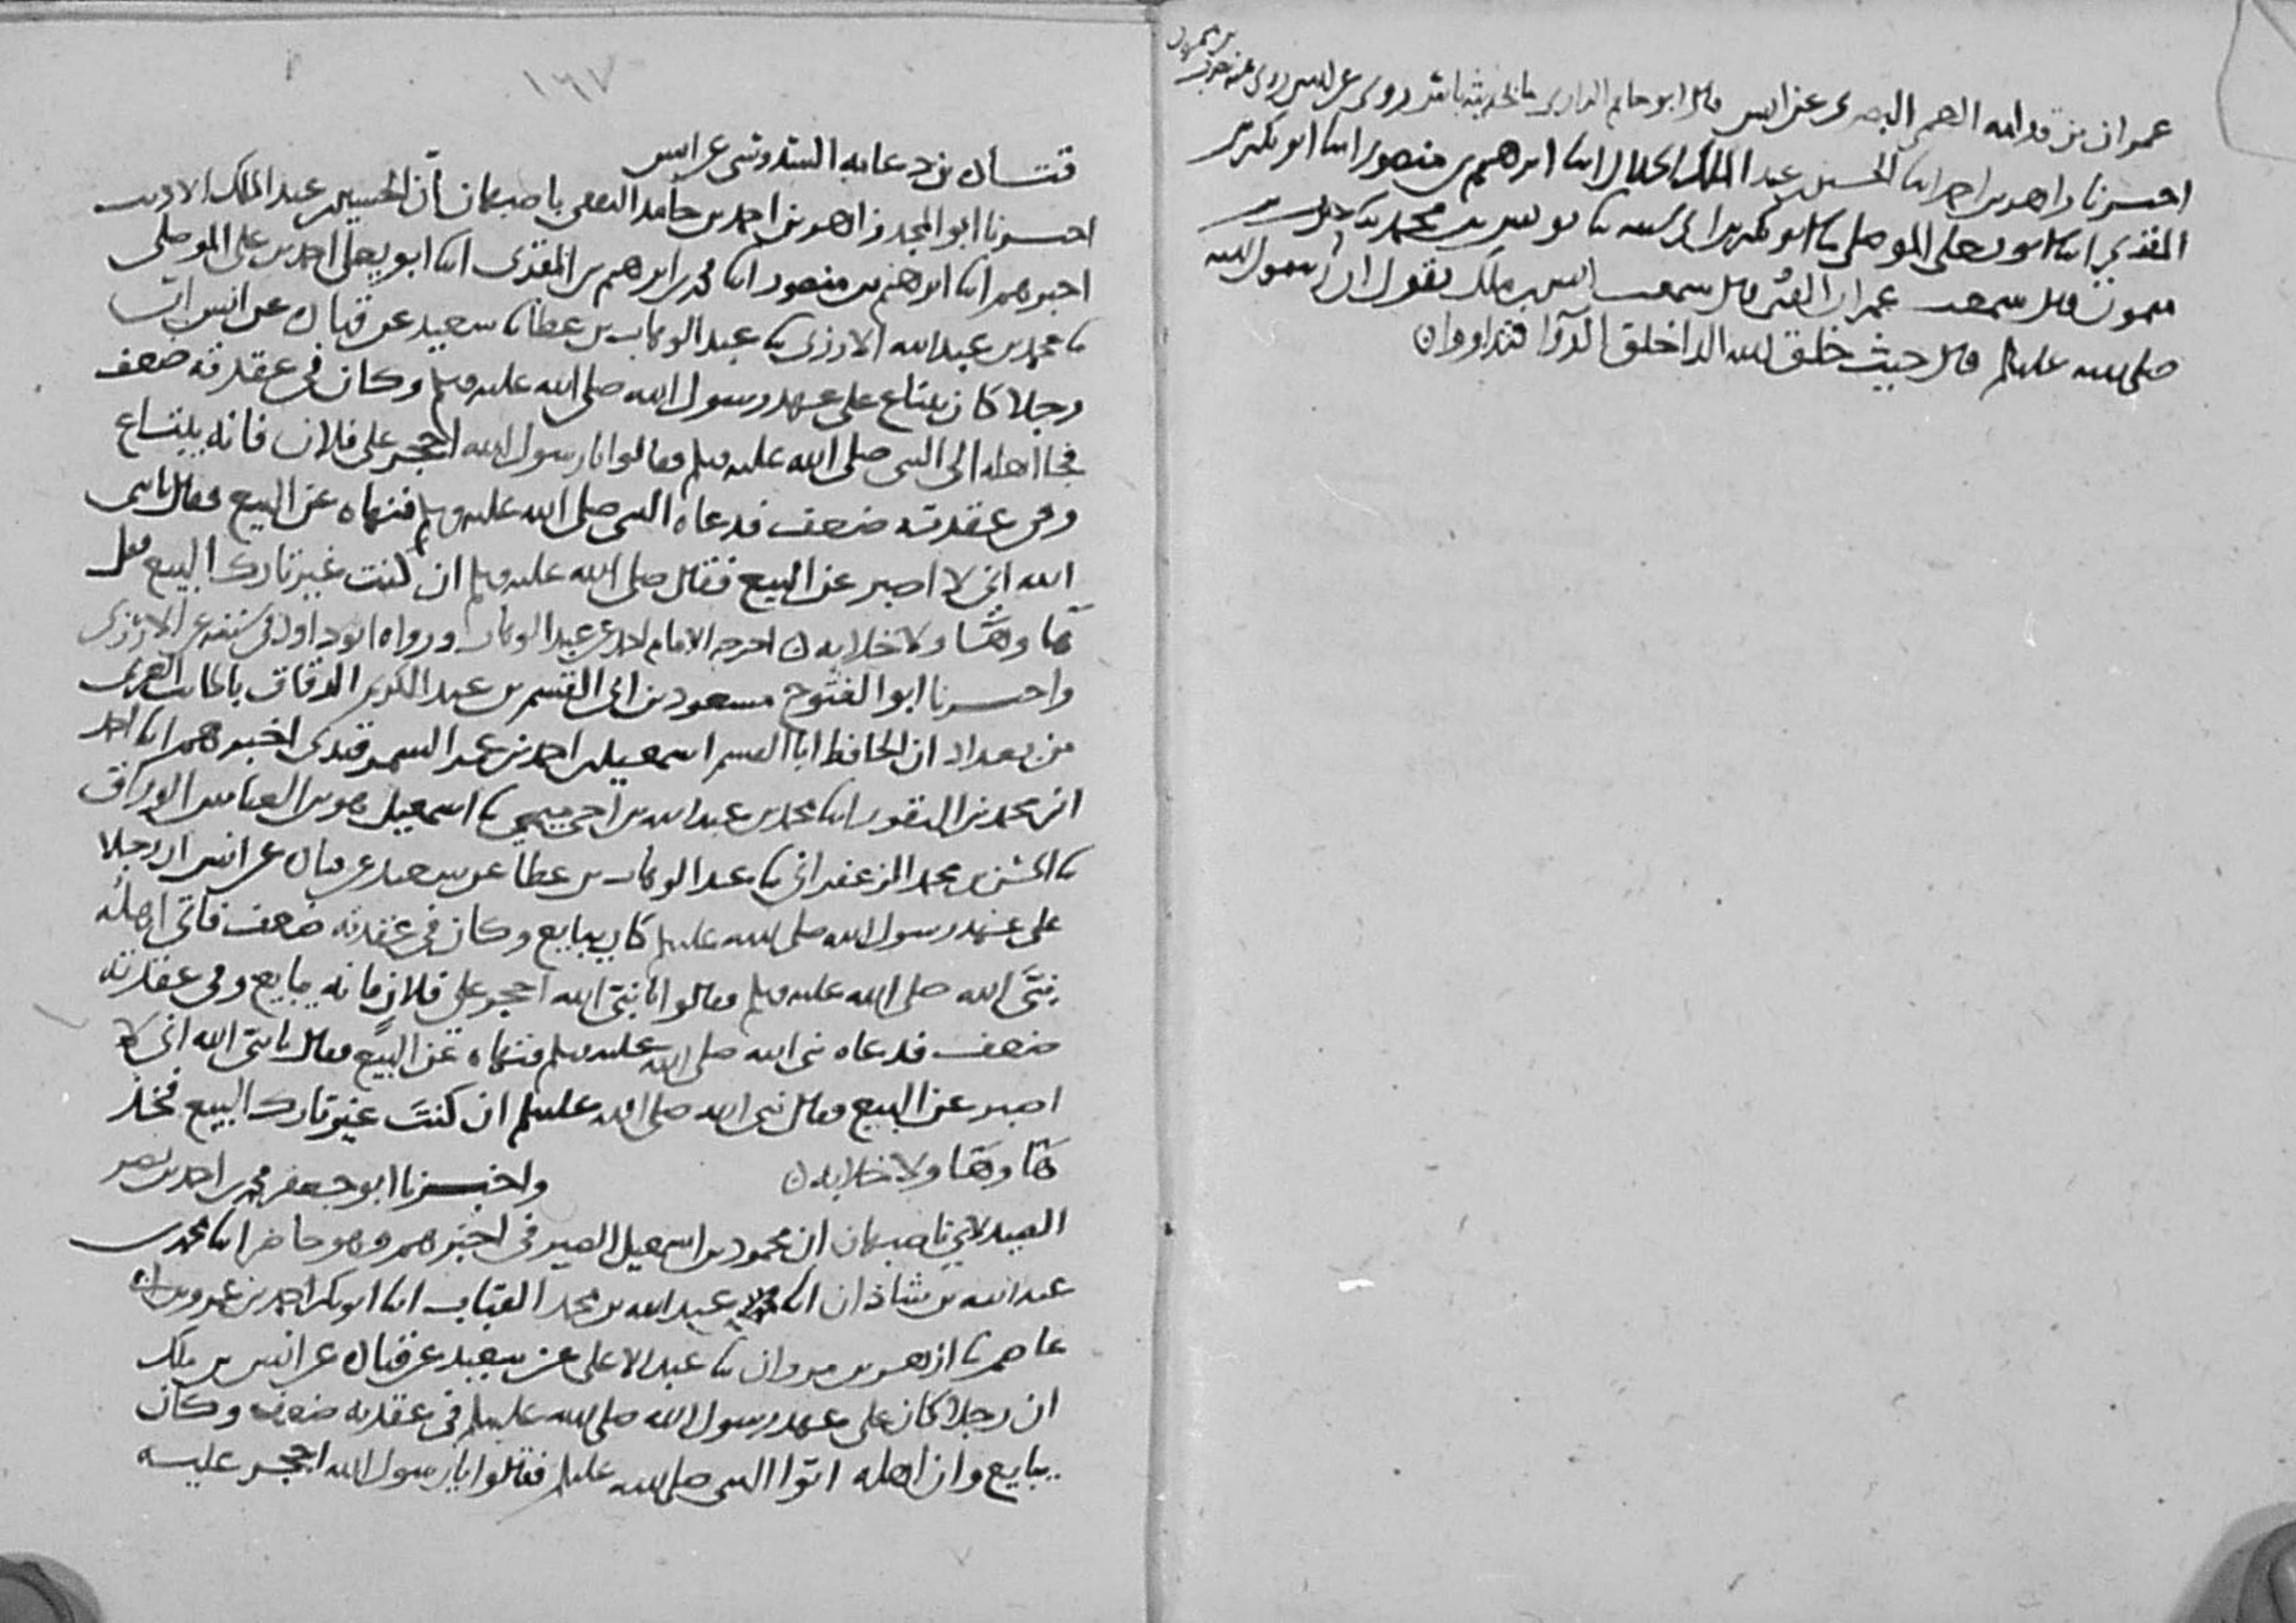 عمران بن قدامه العمي البصري عن انس قال ابو حاتم الرازي ما بحديثه باس روى عن انس روى عنه حرب
بن ميمون
اخبرنا زاهر بن احمد انا الحسين بن عبد الملك الخلال انا ابرهيم بن منصور انا ابو بكر بن
المقري انا ابو يعلى الموصلي نا ابو بكر بن ابي شيبه نا يونس بن محمد نا حرب بن
ميمون قال سمعت عمران العمي قال سمعت انس بن ملك يقول ان رسول الله
صلى الله عليه وسلم قال حيث خلق الله الدا خلق الدوا فتداووا ن
١٦٧
قتادة بن دعامه السدوسي عن انس
اخبرنا ابو المجد زاهر بن احمد بن حامد الثقفي باصبهان ان الحسين بن عبد الملك الاديب
اخبرهم انا ابرهيم بن منصور انا محمد بن ابرهيم بن المقري انا ابو يعلى احمد بن علي الموصلي
نا محمد بن عبد الله الارزي نا عبد الوهاب بن عطا نا سعيد عن قتادة عن انس ان
رجلا كان يبتاع على عهد رسول الله صلى الله عليه وسلم وكان في عقدته ضعف
فجا اهله الى النبي صلى الله عليه وسلم فقالوا يا رسول الله احجر على فلان فانه يبتاع
وفي عقدته ضعف فدعاه النبي صلى الله عليه وسلم فنهاه عن البيع فقال يا نبي
الله اني لا اصبر عن البيع فقال صلى الله عليه وسلم ان كنت غير تارك البيع فقل
ها وها ولا خلابه ن اخرجه الامام احمد عن عبد الوهاب ورواه ابو داود في سننه عن الارزي
واخبرنا ابو الفتوح مسعود بن ابي القسم بن عبد الكريم الدقاق بالجانب الغربي
من بغداد ان الحافظ ابا القسم اسمعيل بن احمد بن عمر السمرقندي اخبرهم انا احمد
ابن محمد بن النقور انا محمد بن عبد الله بن اخي ميمي نا اسمعيل هو بن العباس الوراق
نا الحسن بن محمد الزعفراني نا عبد الوهاب بن عطا عن سعيد عن قتادة عن انس ان رجلا
على عهد رسول الله صلى الله عليه وسلم كان يبايع وكان في عقدته ضعف فاتى اهله
نبي الله صلى الله عليه وسلم فقالوا يا نبي الله احجر على فلان فانه يبايع وفي عقدته
ضعف فدعاه نبي الله صلى الله عليه وسلم فنهاه عن البيع فقال يا نبي الله اني لا
اصبر عن البيع فقال نبي الله صلى الله عليه وسلم ان كنت غير تارك البيع فخذ
ها وها ولا خلابه ن واخبرنا ابو جعفر محمد بن احمد بن نصر
الصيدلاني باصبهان ان محمود بن اسمعيل الصيرفي اخبرهم وهو حاضر انا محمد بن
عبد الله بن شاذان انا عبد الله بن محمد القباب انا ابو بكر احمد بن عمرو بن ابي
عاصم نا ازهر بن مروان نا عبد الاعلى عن سعيد عن قتادة عن انس بن ملك
ان رجلا كان على عهد رسول الله صلى الله عليه وسلم في عقدته ضعف وكان
يبايع وان اهله اتوا النبي صلى الله عليه وسلم فقالوا يا رسول الله احجر عليه